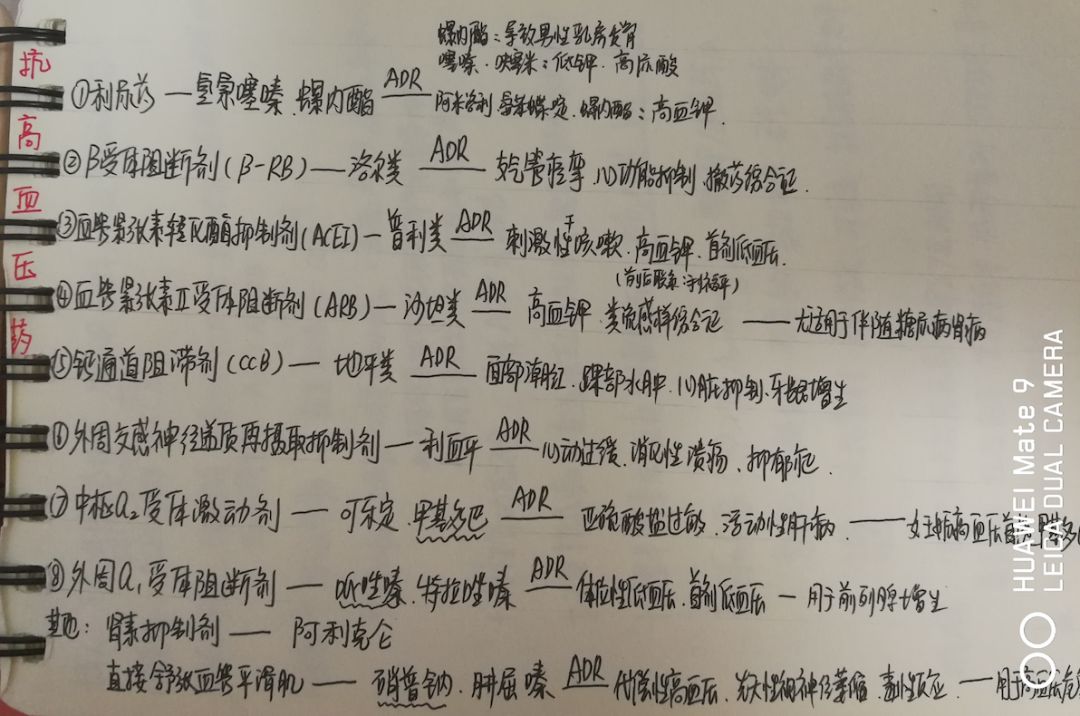 抗高血压药
螺内酯：导致男性乳房发育
噻嗪、呋塞米：低钾、高尿酸
①利尿药—氢氯噻嗪、螺内酯 ADR 阿米洛利 氨苯蝶啶、螺内酯：高血钾.
②β受体阻断剂(β-RB)—洛尔类 ADR 支气管痉挛、心功能抑制、撤药综合征.
③血管紧张素转化酶抑制剂(ACEI)—普利类 ADR 刺激性干咳嗽、高血钾、首剂低血压.
④血管紧张素Ⅱ受体阻断剂(ARB)—沙坦类 ADR 高血钾、类流感样综合征 — 尤适用于伴随糖尿病肾病
⑤钙通道阻滞剂(CCB)—地平类 ADR 面部潮红、踝部水肿、心脏抑制、牙龈增生
⑥外周交感神经递质再摄取抑制剂—利血平 ADR 心动过缓、消化性溃疡、抑郁症.
⑦中枢α₂受体激动剂—可乐定、甲基多巴 ADR 亚硫酸盐过敏、活动性肝病 — 妊娠高血压首选甲基多
⑧外周α₁受体阻断剂—哌唑嗪、特拉唑嗪 ADR 体位性低血压、首剂低血压—用于前列腺增生
其他：肾素抑制剂—阿利克仑
直接舒张血管平滑肌—硝普钠、肼屈嗪 ADR 代偿性高血压、毒性反应—用于高血压危
HUAWEI Mate 9
LEICA DUAL CAMERA